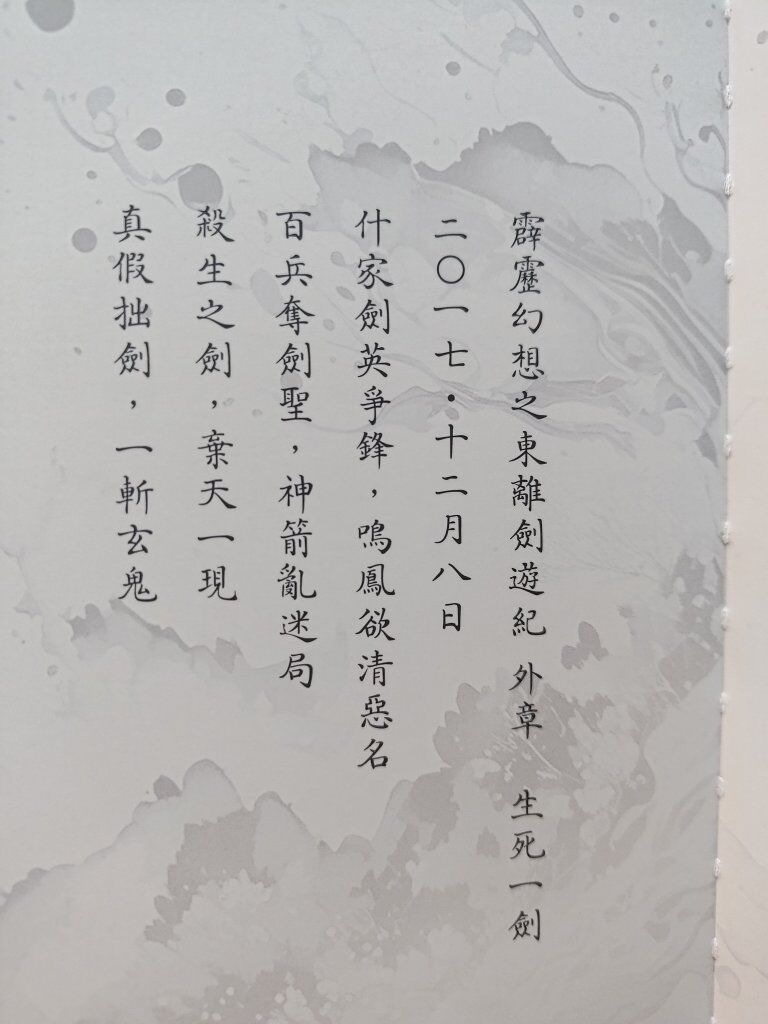 霹靂幻想之東離劍遊紀 外章 生死一劍
二〇一七・十二月八日
什家劍英爭鋒，鳴鳳欲清惡名
百兵奪劍聖，神箭亂迷局
殺生之劍，棄天一現
真假拙劍，一斬玄鬼